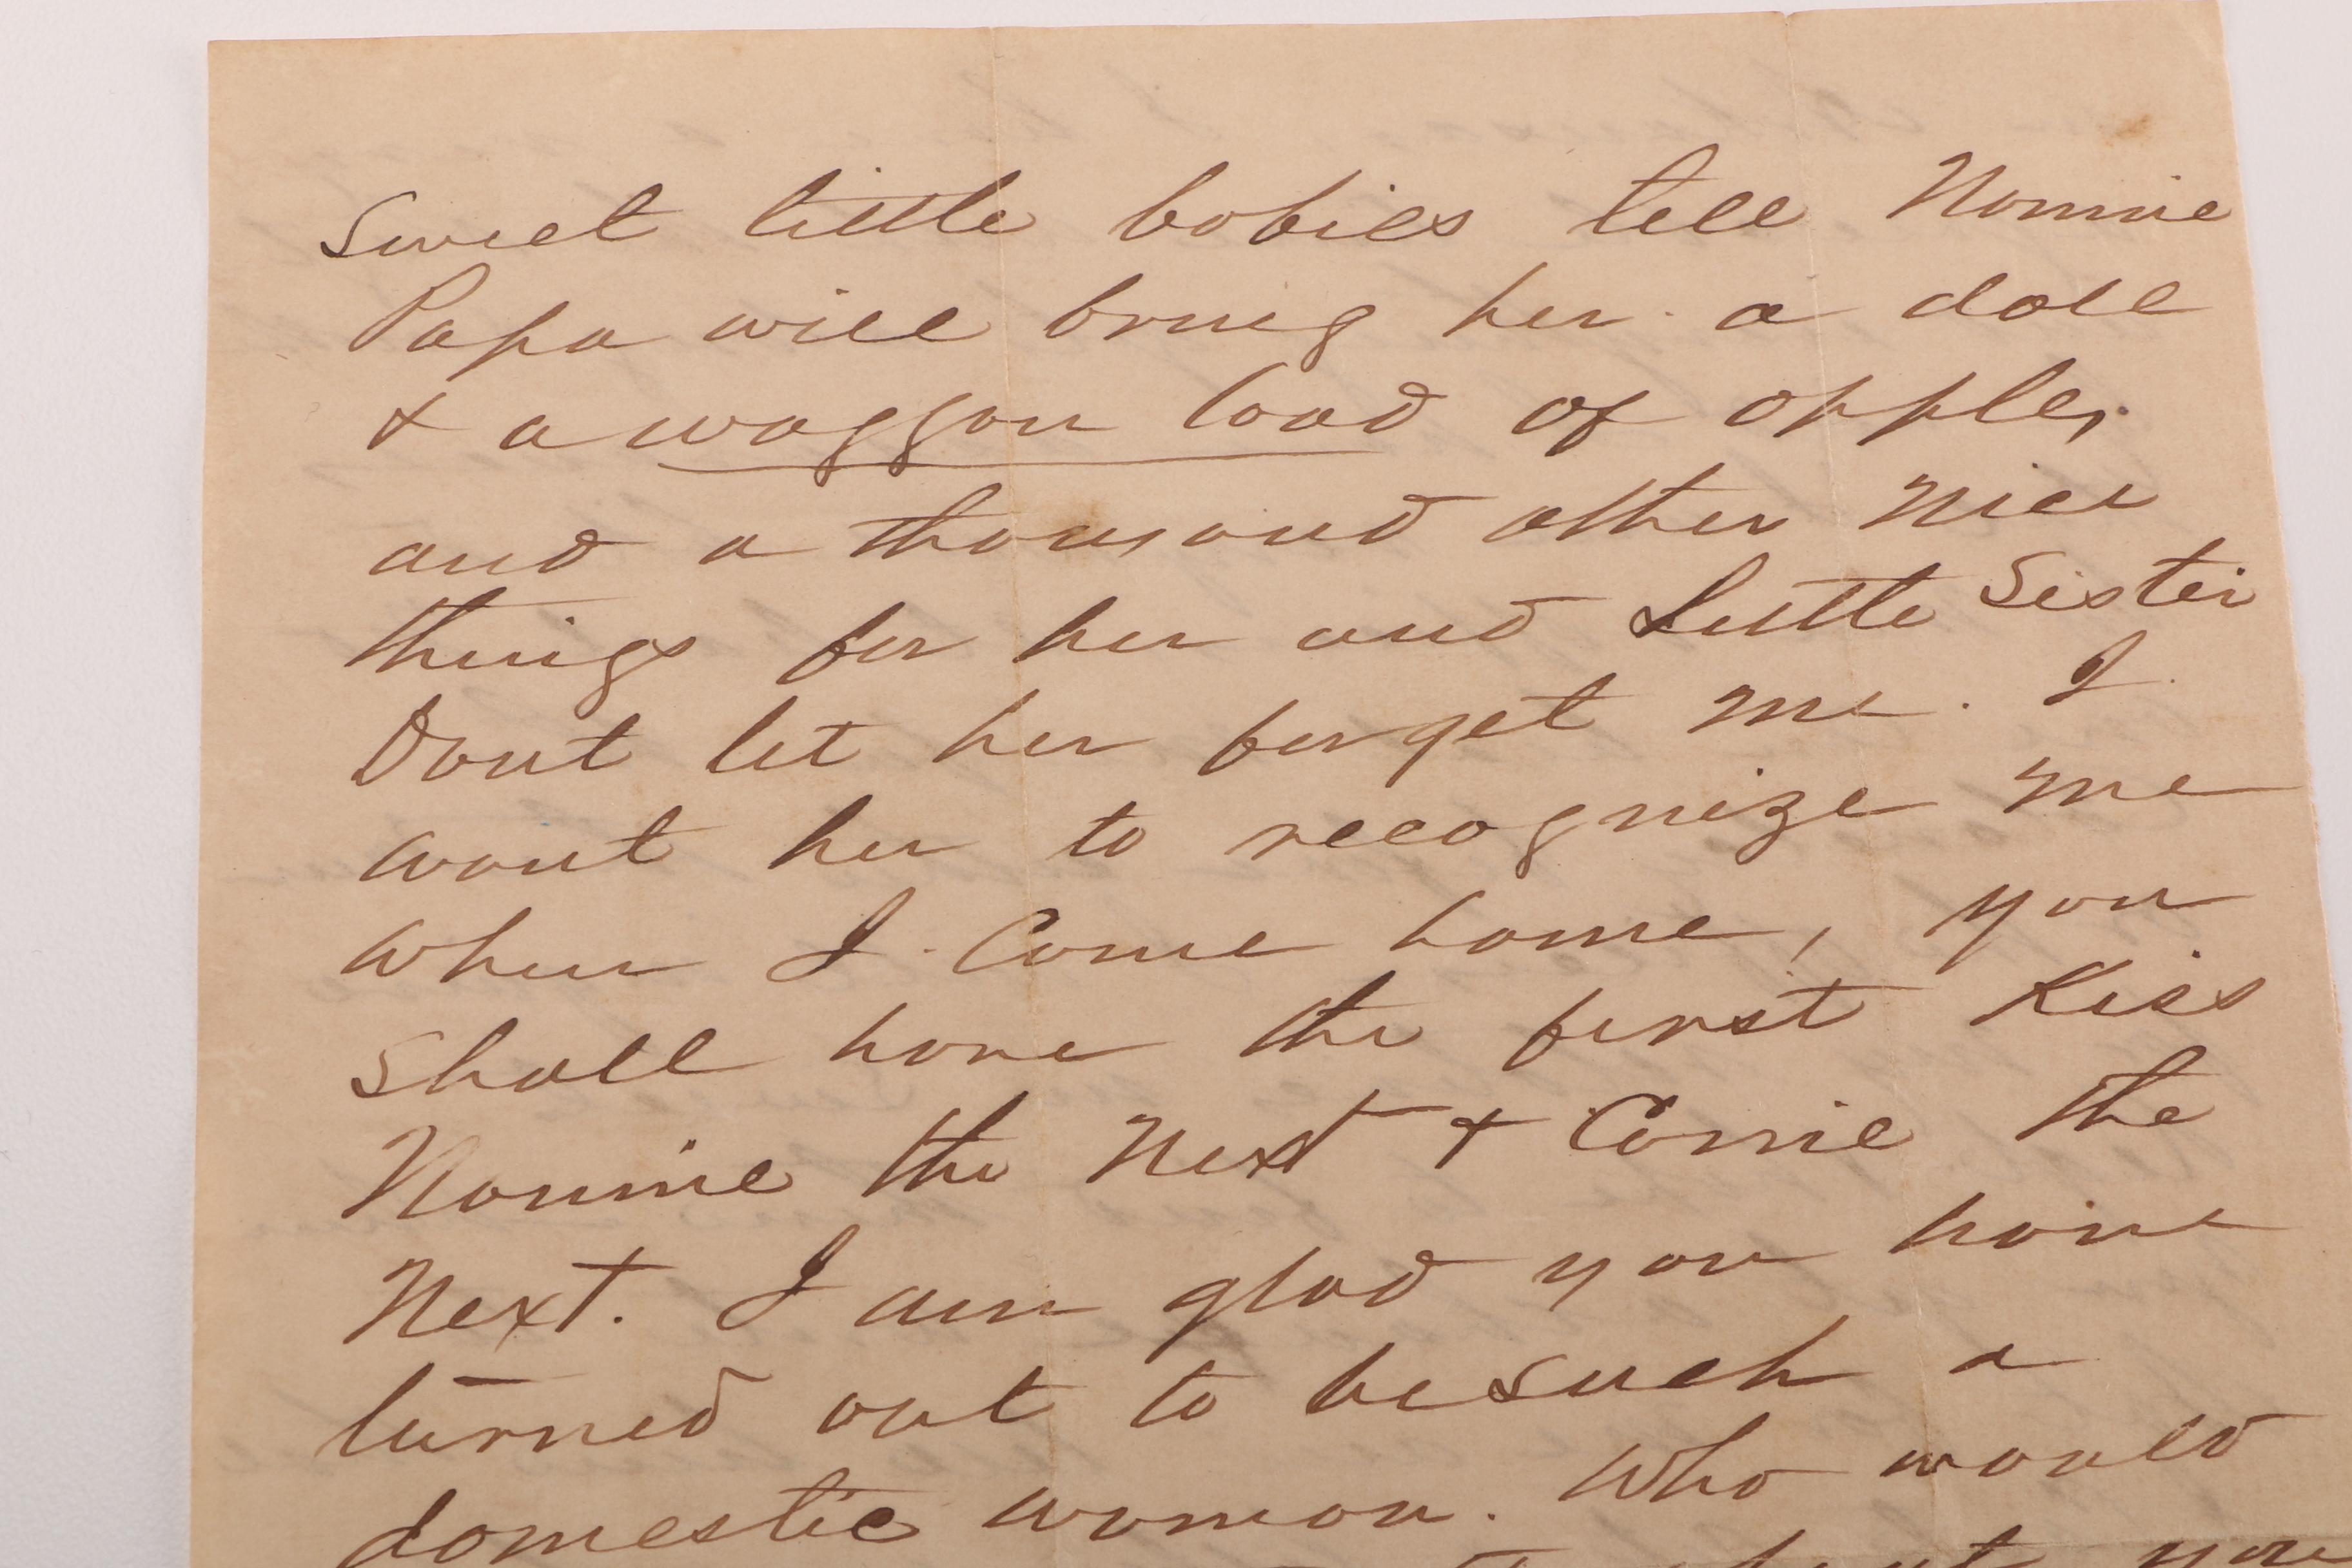 Sweet little babies tell Nannie
Papa will bring her a doll
& a waggon load of apples
and a thousand other nice
things for her and Little Sister
Dont let her forget me. I
want her to recognize me
when I come home, you
shall have the first Kiss
Nannie the Next & Connie the
Next. I am glad you have
turned out to be such a
domestic woman. Who would